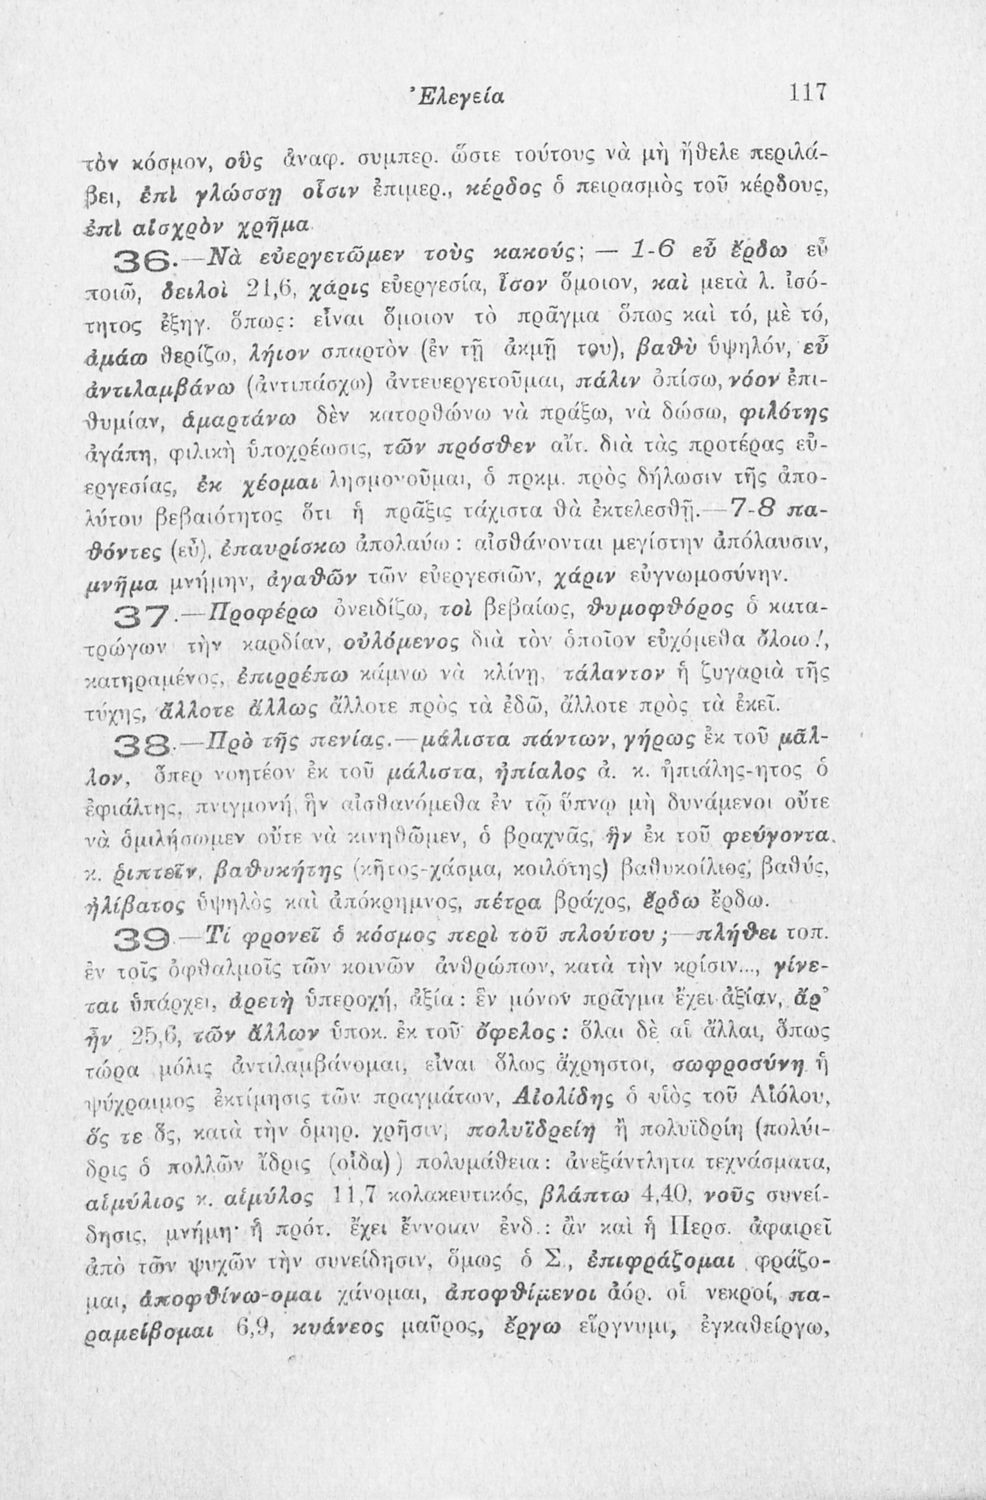 Ἐλεγεία 117
τὸν κόσμον, οὓς ἀναφ. συμπερ. ὥστε τούτους νὰ μὴ ἤθελε περιλά-
βει, ἐπὶ γλώσσῃ οἷσιν ἐπιμερ., κέρδος ὁ πειρασμὸς τοῦ κέρδους,
ἐπὶ αἰσχρὸν χρῆμα.
36.—Νὰ εὐεργετῶμεν τοὺς κακούς; — 1-6 εὖ ἔρδω εὖ
ποιῶ, δειλοὶ 21,6, χάρις εὐεργεσία, ἶσον ὅμοιον, καὶ μετὰ λ. ἰσό-
τητος ἐξηγ. ὅπως: εἶναι ὅμοιον τὸ πρᾶγμα ὅπως καὶ τό, μὲ τό,
ἀμάω θερίζω, λήιον σπαρτὸν (ἐν τῇ ἀκμῇ του), βαθὺ ὑψηλόν, εὖ
ἀντιλαμβάνω (ἀντιπάσχω) ἀντευεργετοῦμαι, πάλιν ὀπίσω, νόον ἐπι-
θυμίαν, ἁμαρτάνω δὲν κατορθώνω νὰ πράξω, νὰ δώσω, φιλότης
ἀγάπη, φιλικὴ ὑποχρέωσις, τῶν πρόσθεν αἴτ. διὰ τὰς προτέρας εὐ-
εργεσίας, ἐκ χέομαι λησμονοῦμαι, ὁ πρκμ. πρὸς δήλωσιν τῆς ἀπο-
λύτου βεβαιότητος ὅτι ἡ πρᾶξις τάχιστα θὰ ἐκτελεσθῇ.—7-8 πα-
θόντες (εὖ), ἐπαυρίσκω ἀπολαύω: αἰσθάνονται μεγίστην ἀπόλαυσιν,
μνῆμα μνήμην, ἀγαθῶν τῶν εὐεργεσιῶν, χάριν εὐγνωμοσύνην.
37.—Προφέρω ὀνειδίζω, τοὶ βεβαίως, θυμοφθόρος ὁ κατα-
τρώγων τὴν καρδίαν, οὐλόμενος διὰ τὸν ὁποῖον εὐχόμεθα ὄλοιο!,
κατηραμένος, ἐπιρρέπω κάμνω νὰ κλίνῃ, τάλαντον ἡ ζυγαριὰ τῆς
τύχης, ἄλλοτε ἄλλως ἄλλοτε πρὸς τὰ ἐδῶ, ἄλλοτε πρὸς τὰ ἐκεῖ.
38.—Πρὸ τῆς πενίας.—μάλιστα πάντων, γήρως ἐκ τοῦ μᾶλ-
λον, ὅπερ νοητέον ἐκ τοῦ μάλιστα, ἠπίαλος ἀ. κ. ἠπιάλης-ητος ὁ
ἐφιάλτης, πνιγμονή, ἣν αἰσθανόμεθα ἐν τῷ ὕπνῳ μὴ δυνάμενοι οὔτε
νὰ ὁμιλήσωμεν οὔτε νὰ κινηθῶμεν, ὁ βραχνᾶς, ἣν ἐκ τοῦ φεύγοντα.
κ. ῥιπτεῖν, βαθυκήτης (κῆτος-χάσμα, κοιλότης) βαθυκοίλιος, βαθύς,
ἠλίβατος ὑψηλὸς καὶ ἀπόκρημνος, πέτρα βράχος, ἔρδω ἔρδω.
39—Τί φρονεῖ ὁ κόσμος περὶ τοῦ πλούτου;—πλήθει τοπ.
ἐν τοῖς ὀφθαλμοῖς τῶν κοινῶν ἀνθρώπων, κατὰ τὴν κρίσιν..., γίνε-
ται ὑπάρχει, ἀρετὴ ὑπεροχή, ἀξία: ἓν μόνον πρᾶγμα ἔχει ἀξίαν, ἄρ᾽
ἦν 25,6, τῶν ἄλλων ὑποκ. ἐκ τοῦ ὄφελος: ὅλαι δὲ αἱ ἄλλαι, ὅπως
τώρα μόλις ἀντιλαμβάνομαι, εἶναι ὅλως ἄχρηστοι, σωφροσύνη ἡ
ψύχραιμος ἐκτίμησις τῶν πραγμάτων, Αἰολίδης ὁ υἱὸς τοῦ Αἰόλου,
ὅς τε ὅς, κατὰ τὴν ὁμηρ. χρῆσιν, πολυϊδρείη ἢ πολυϊδρίη (πολύι-
δρις ὁ πολλῶν ἴδρις (οἶδα)) πολυμάθεια: ἀνεξάντλητα τεχνάσματα,
αἱμύλιος κ. αἱμύλος 11,7 κολακευτικός, βλάπτω 4,40, νοῦς συνεί-
δησις, μνήμη· ἡ πρότ. ἔχει ἔννοιαν ἐνδ.: ἂν καὶ ἡ Περσ. ἀφαιρεῖ
ἀπὸ τῶν ψυχῶν τὴν συνείδησιν, ὅμως ὁ Σ., ἐπιφράζομαι φράζο-
μαι, ἀποφθίνω-ομαι χάνομαι, ἀποφθίμενοι ἀόρ. οἱ νεκροί, πα-
ραμείβομαι 6,9, κυάνεος μαῦρος, ἔργω εἴργνυμι, ἐγκαθείργω,